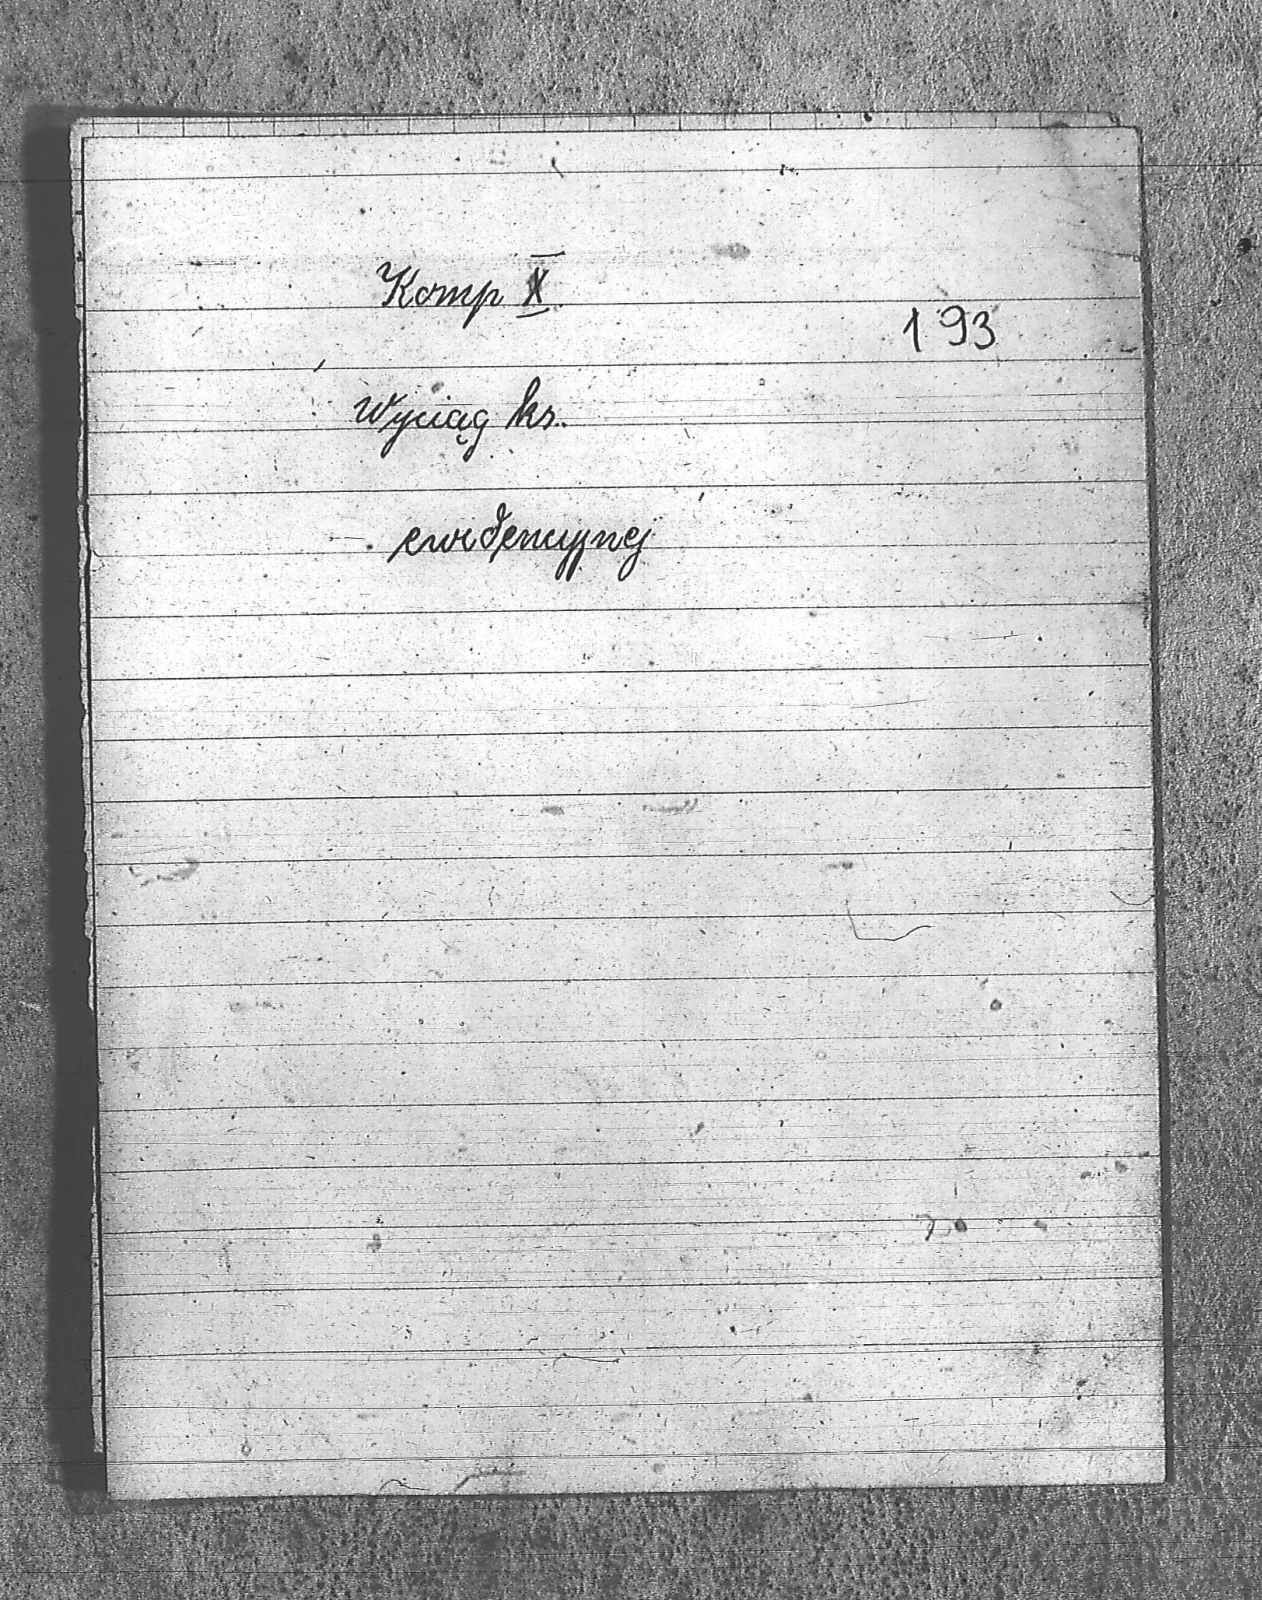 Komp X.
193
Wyciąg ks.
ewidencyjnej